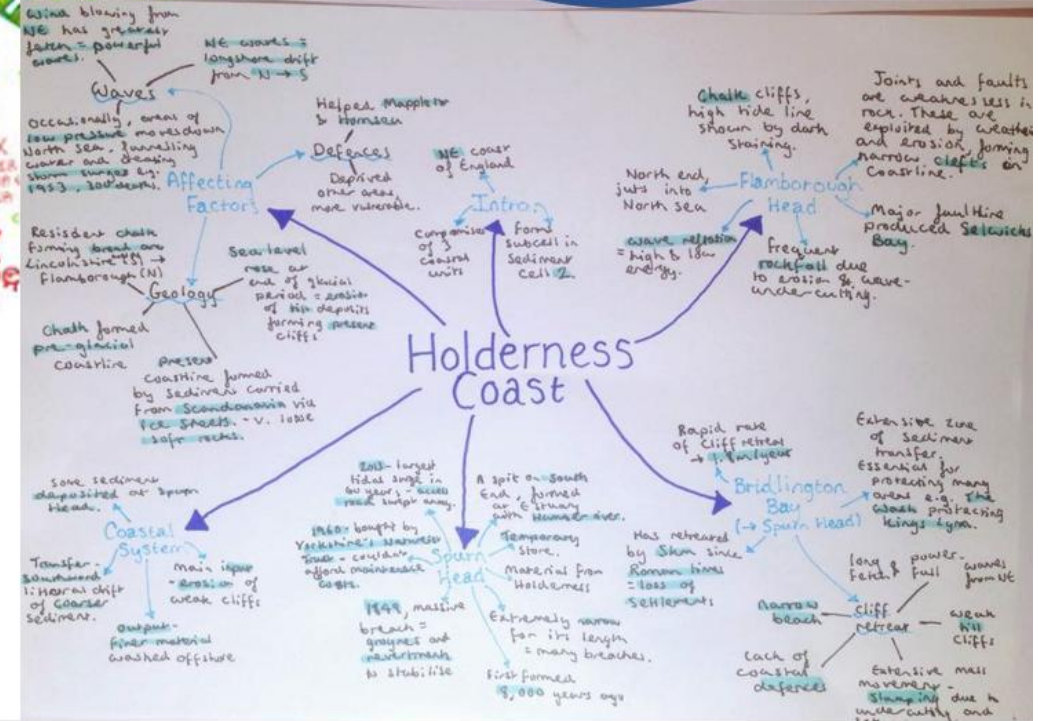 Holderness
Coast
Affecting
Factors
Waves
Wind blowing from
NE has greatest
fetch = powerful
waves.
NE waves =
longshore drift
from N → S
Occasionally, areas of
low pressure moves down
North Sea, funnelling
water and creating
storm surges e.g.
1953, 300 deaths.
Defences
Helped Mappleton
& Hornsea
Deprived
other areas,
more vulnerable.
Geology
Resistent chalk
forming broad arc
Lincolnshire (S) →
Flamborough (N)
Sea level
rose at
end of glacial
period = erosion
of till deposits
forming present
cliffs
Chalk formed
pre-glacial
coastline
Present
coastline formed
by sediment carried
from Scandanavia via
ice sheets. - v. loose
soft rocks.
Intro.
NE coast
of England
Comprises
of 3
coastal
units
Forms
subcell in
sediment
cell 2
Flamborough
Head
Chalk cliffs,
high tide line
shown by dark
staining.
Joints and faults
are weaknesses in
rock. These are
exploited by
and erosion, forming
narrow clefts in
coastline.
North end,
juts into
North sea
wave refraction
= high & low
energy.
Frequent
rockfall due
to erosion & wave-
undercutting.
Major faultline
produced Selwicks
Bay.
Bridlington
Bay
(→ Spurn Head)
Rapid rate
of cliff retreat
→ 1.8m/year
Extensive zone
of sediment
transfer.
Essential for
protecting many
areas e.g. The
Wash protecting
Kings Lynn.
Has retreated
by 5km since
Roman times
= loss of
settlements
cliff
retreat
long
fetch & power-
full waves
from NE
narrow
beach
weak
till
cliffs
Lack of
coastal
defences
Extensive mass
movement -
slumping due to
undercutting and
Spurn
Head
2013 - largest
tidal surge in
60 years, - access
road swept away.
A spit on South
End, formed
at Estuary
with Humber river.
1960 - bought by
Yorkshire's Naturist
Trust - couldn't
afford maintenance
costs.
Temporary
store.
Material from
Holderness
1849, massive
breach =
groynes and
revertment
to stabilise
Extremely narrow
for its length
= many breaches.
First formed
8,000 years ago
Coastal
System
some sediment
deposited at Spurn
Head.
Transfer -
southward
littoral drift
of coarser
sediment.
main input
- erosion of
weak cliffs
output -
finer material
washed offshore